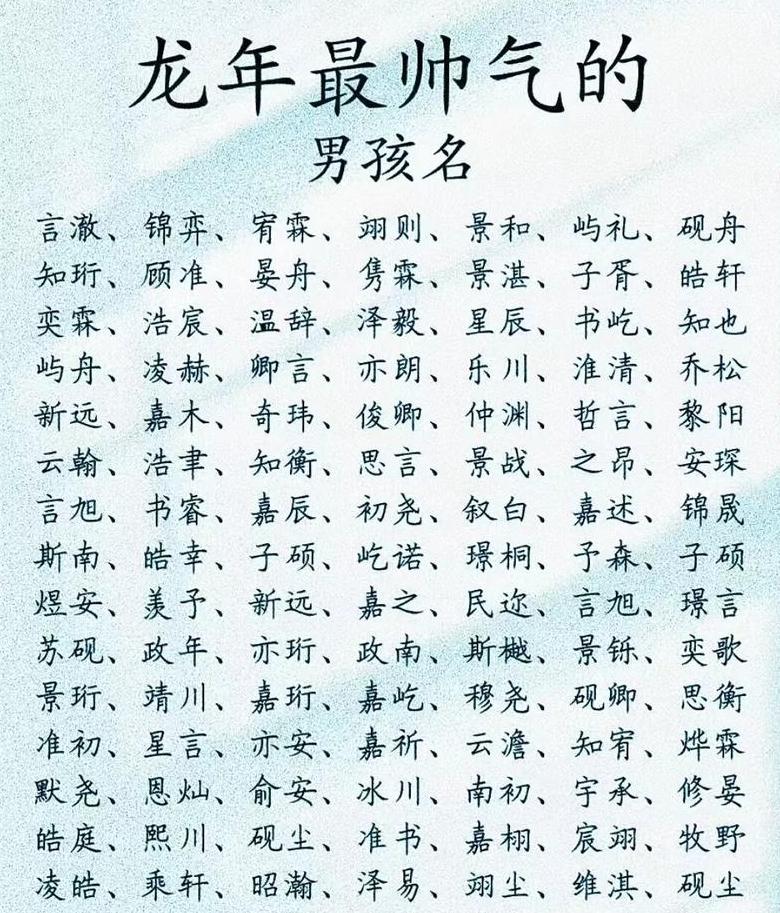 龙年最帅气的
男孩名
言澈、锦弈、宥霖、翊则、景和、屿礼、砚舟
知珩、顾准、晏舟、隽霖、景湛、子胥、皓轩
奕霖、浩宸、温辞、泽毅、星辰、书屹、知也
屿舟、凌赫、卿言、亦朗、乐川、淮清、乔松
新远、嘉木、奇玮、俊卿、仲渊、哲言、黎阳
云翰、浩聿、知衡、思言、景战、之昂、安琛
言旭、书睿、嘉辰、初尧、叙白、嘉述、锦晟
斯南、皓幸、子硕、屹诺、璟桐、予森、子硕
煜安、羡予、新远、嘉之、民迩、言旭、璟言
苏砚、政年、亦珩、政南、斯樾、景铄、奕歌
景珩、靖川、嘉珩、嘉屹、穆尧、砚卿、思衡
准初、星言、亦安、嘉祈、云澹、知宥、烨霖
默尧、恩灿、俞安、冰川、南初、宇承、修晏
皓庭、熙川、砚尘、准书、嘉栩、宸翊、牧野
凌皓、乘轩、昭瀚、泽易、翊尘、维淇、砚尘